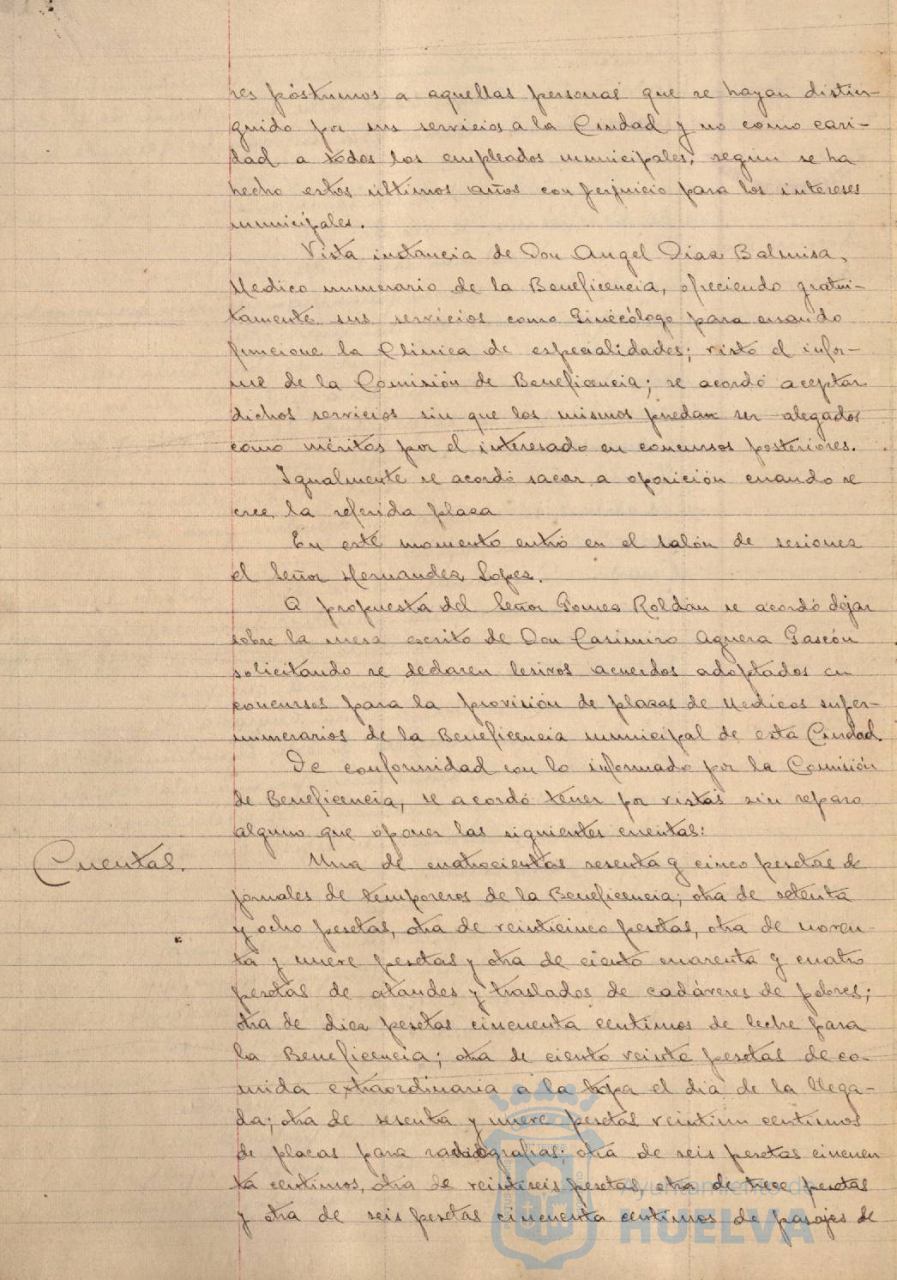 res póstumos a aquellas personas que se hayan distin-
guido por sus servicios a la Ciudad y no como cari-
dad a todos los empleados municipales, según se ha
hecho estos últimos años con perjuicio para los intereses
municipales.
Vista instancia de Don Angel Diaz Balmisa,
Medico numerario de la Beneficencia, ofreciendo gratui-
tamente sus servicios como Ginecólogo para cuando
funcione la Clinica de especialidades; visto el infor-
me de la Comisión de Beneficencia; se acordó aceptar
dichos servicios sin que los mismos puedan ser alegados
como méritos por el interesado en concursos posteriores.
Igualmente se acordó sacar a oposición cuando se
cree la referida plaza
En este momento entró en el salón de sesiones
el Señor Hernandez Lopez.
A propuesta del Señor Gomez Roldán se acordó dejar
sobre la mesa escrito de Don Casimiro Aguera Gascón
solicitando se declaren lesivos acuerdos adoptados en
concursos para la provisión de plazas de Medicos super-
numerarios de la Beneficencia municipal de esta Ciudad.
De conformidad con lo informado por la Comisión
de Beneficencia, se acordó tener por vistas sin reparo
alguno que oponer las siguientes cuentas:
Cuentas. Una de cuatrocientas sesenta y cinco pesetas de
jornales de temporeros de la Beneficencia; otra de setenta
y ocho pesetas, otra de veinticinco pesetas, otra de noven-
ta y nueve pesetas y otra de ciento cuarenta y cuatro
pesetas de ataudes y traslados de cadáveres de pobres;
otra de diez pesetas cincuenta centimos de leche para
la Beneficencia; otra de ciento veinte pesetas de co-
mida extraordinaria a la tropa el dia de la llega-
da; otra de sesenta y nueve pesetas veintiun centimos
de placas para radiografias; otra de seis pesetas cincuen
ta centimos, otra de veintiseis pesetas, otra de trece pesetas
y otra de seis pesetas cincuenta centimos de pasajes de
Ayuntamiento de
HUELVA